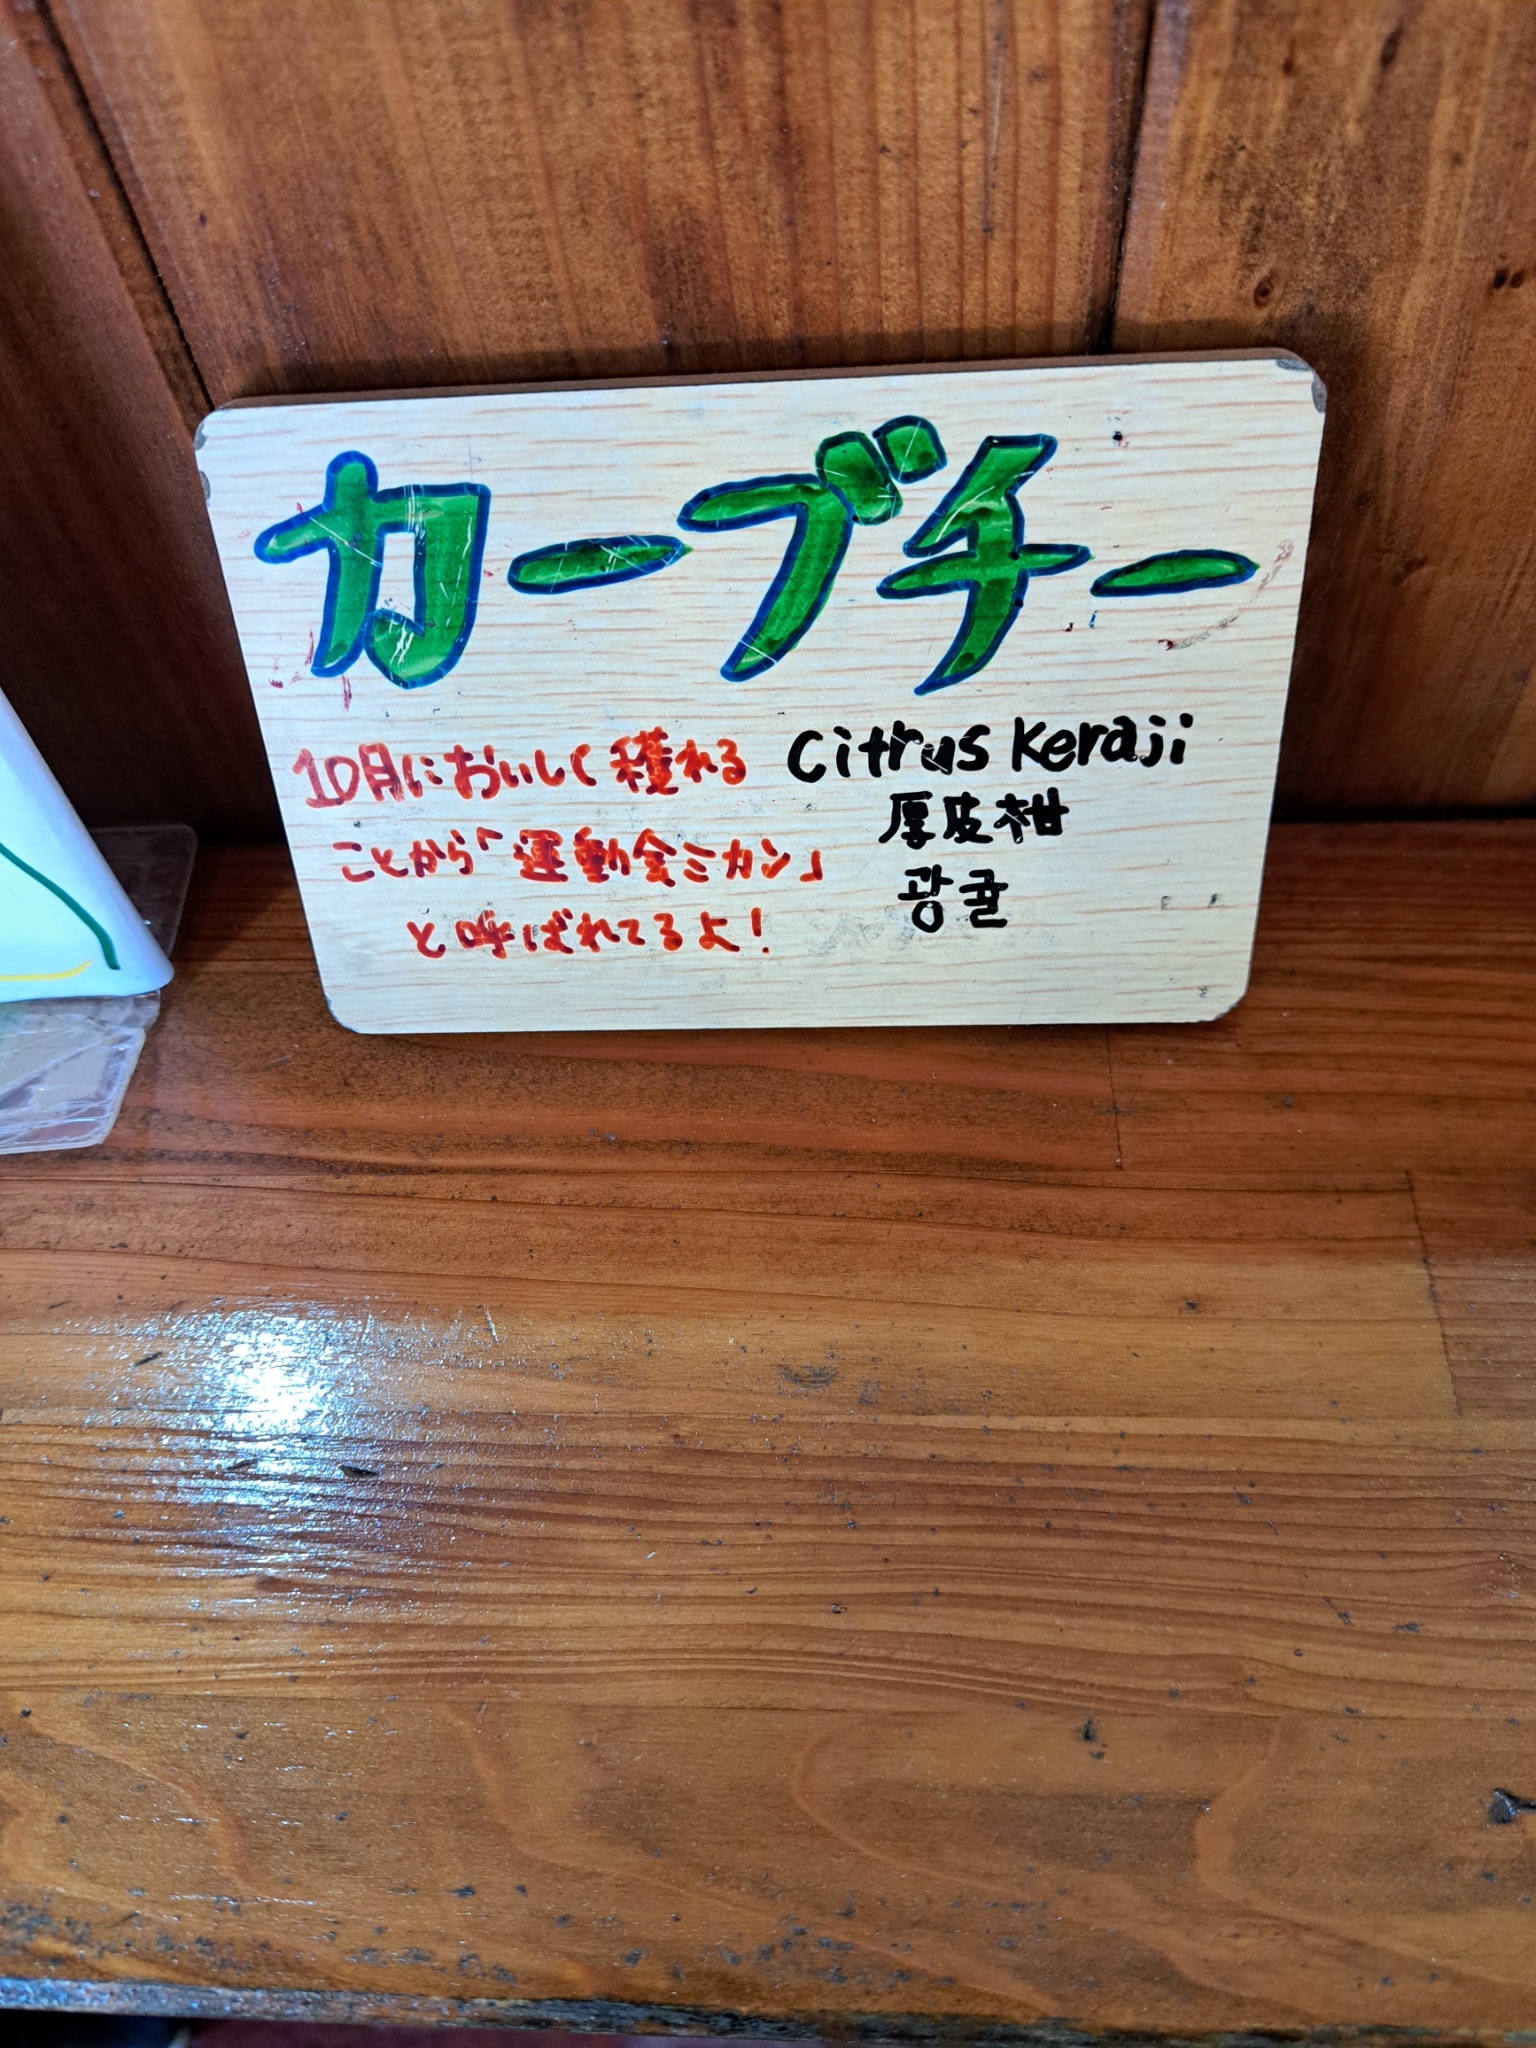 カーブチー
10月においしく穫れる
ことから「運動会ミカン」
と呼ばれてるよ!
Citrus Keraji
厚皮柑
광귤